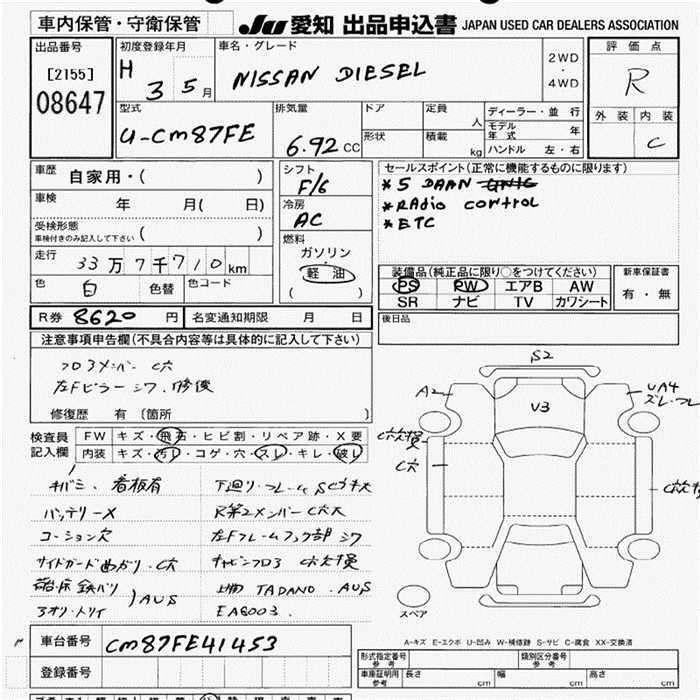 車内保管・守衛保管
JU 愛知 出品申込書 JAPAN USED CAR DEALERS ASSOCIATION
出品番号
[2155]
08647
初度登録年月
H 3 5月
車名・グレード
NISSAN DIESEL
2WD
・
4WD
評価点
R
外装 内装
C
型式
U-CM87FE
排気量
6.92 CC
ドア
形状
定員
人
積載
kg
ディーラー・並行
モデル年式 年
ハンドル 左・右
車歴 自家用・( )
車検 年 月( 日)
受検形態
車検付きのみ記入して下さい ( )
走行 33万7千710km
色 白 色替 色コード
シフト
F/6
冷房
AC
燃料
ガソリン
・
軽油
( )
セールスポイント(正常に機能するものに限ります)
* 5 DAAN
* RADIO CONTROL
* ETC
装備品(純正品に限り○をつけてください)
PS PW エアB AW
SR ナビ TV カワシート
新車保証書
有・無
R券 8620 円 名変通知期限 月 日
後日品
注意事項申告欄(不具合内容等は具体的に記入して下さい)
フロア3メンバー C穴
左Fピラー シワ.修復
修復歴 有 〔箇所 〕
検査員
記入欄
FW キズ・飛石・ヒビ割・リペア跡・X要
内装 キズ・汚レ・コゲ・穴・スレ・キレ・破レ
キバミ、看板有
バッテリーX
コーション欠
サイドガード曲がり.C穴
荷台床鉄バリ
アオリ・トリイ
AUS
下廻り・フレームSC穴大
R第2メンバーC穴大
左Fフレームフック部シワ
キャビンフロア C穴欠損
上物 TADANO .AUS
EA8003.
S2
A2
V3
UA4
ズレ・フレ
C穴欠損
C穴
スペア
A-キズ E-エクボ U-凹み W-補修跡 S-サビ C-腐食 XX-交換済
車台番号 CM87FE41453
登録番号
型式指定番号
参考
類別区分番号
参考
車庫証明用
参考
長さ cm 幅 cm 高さ cm